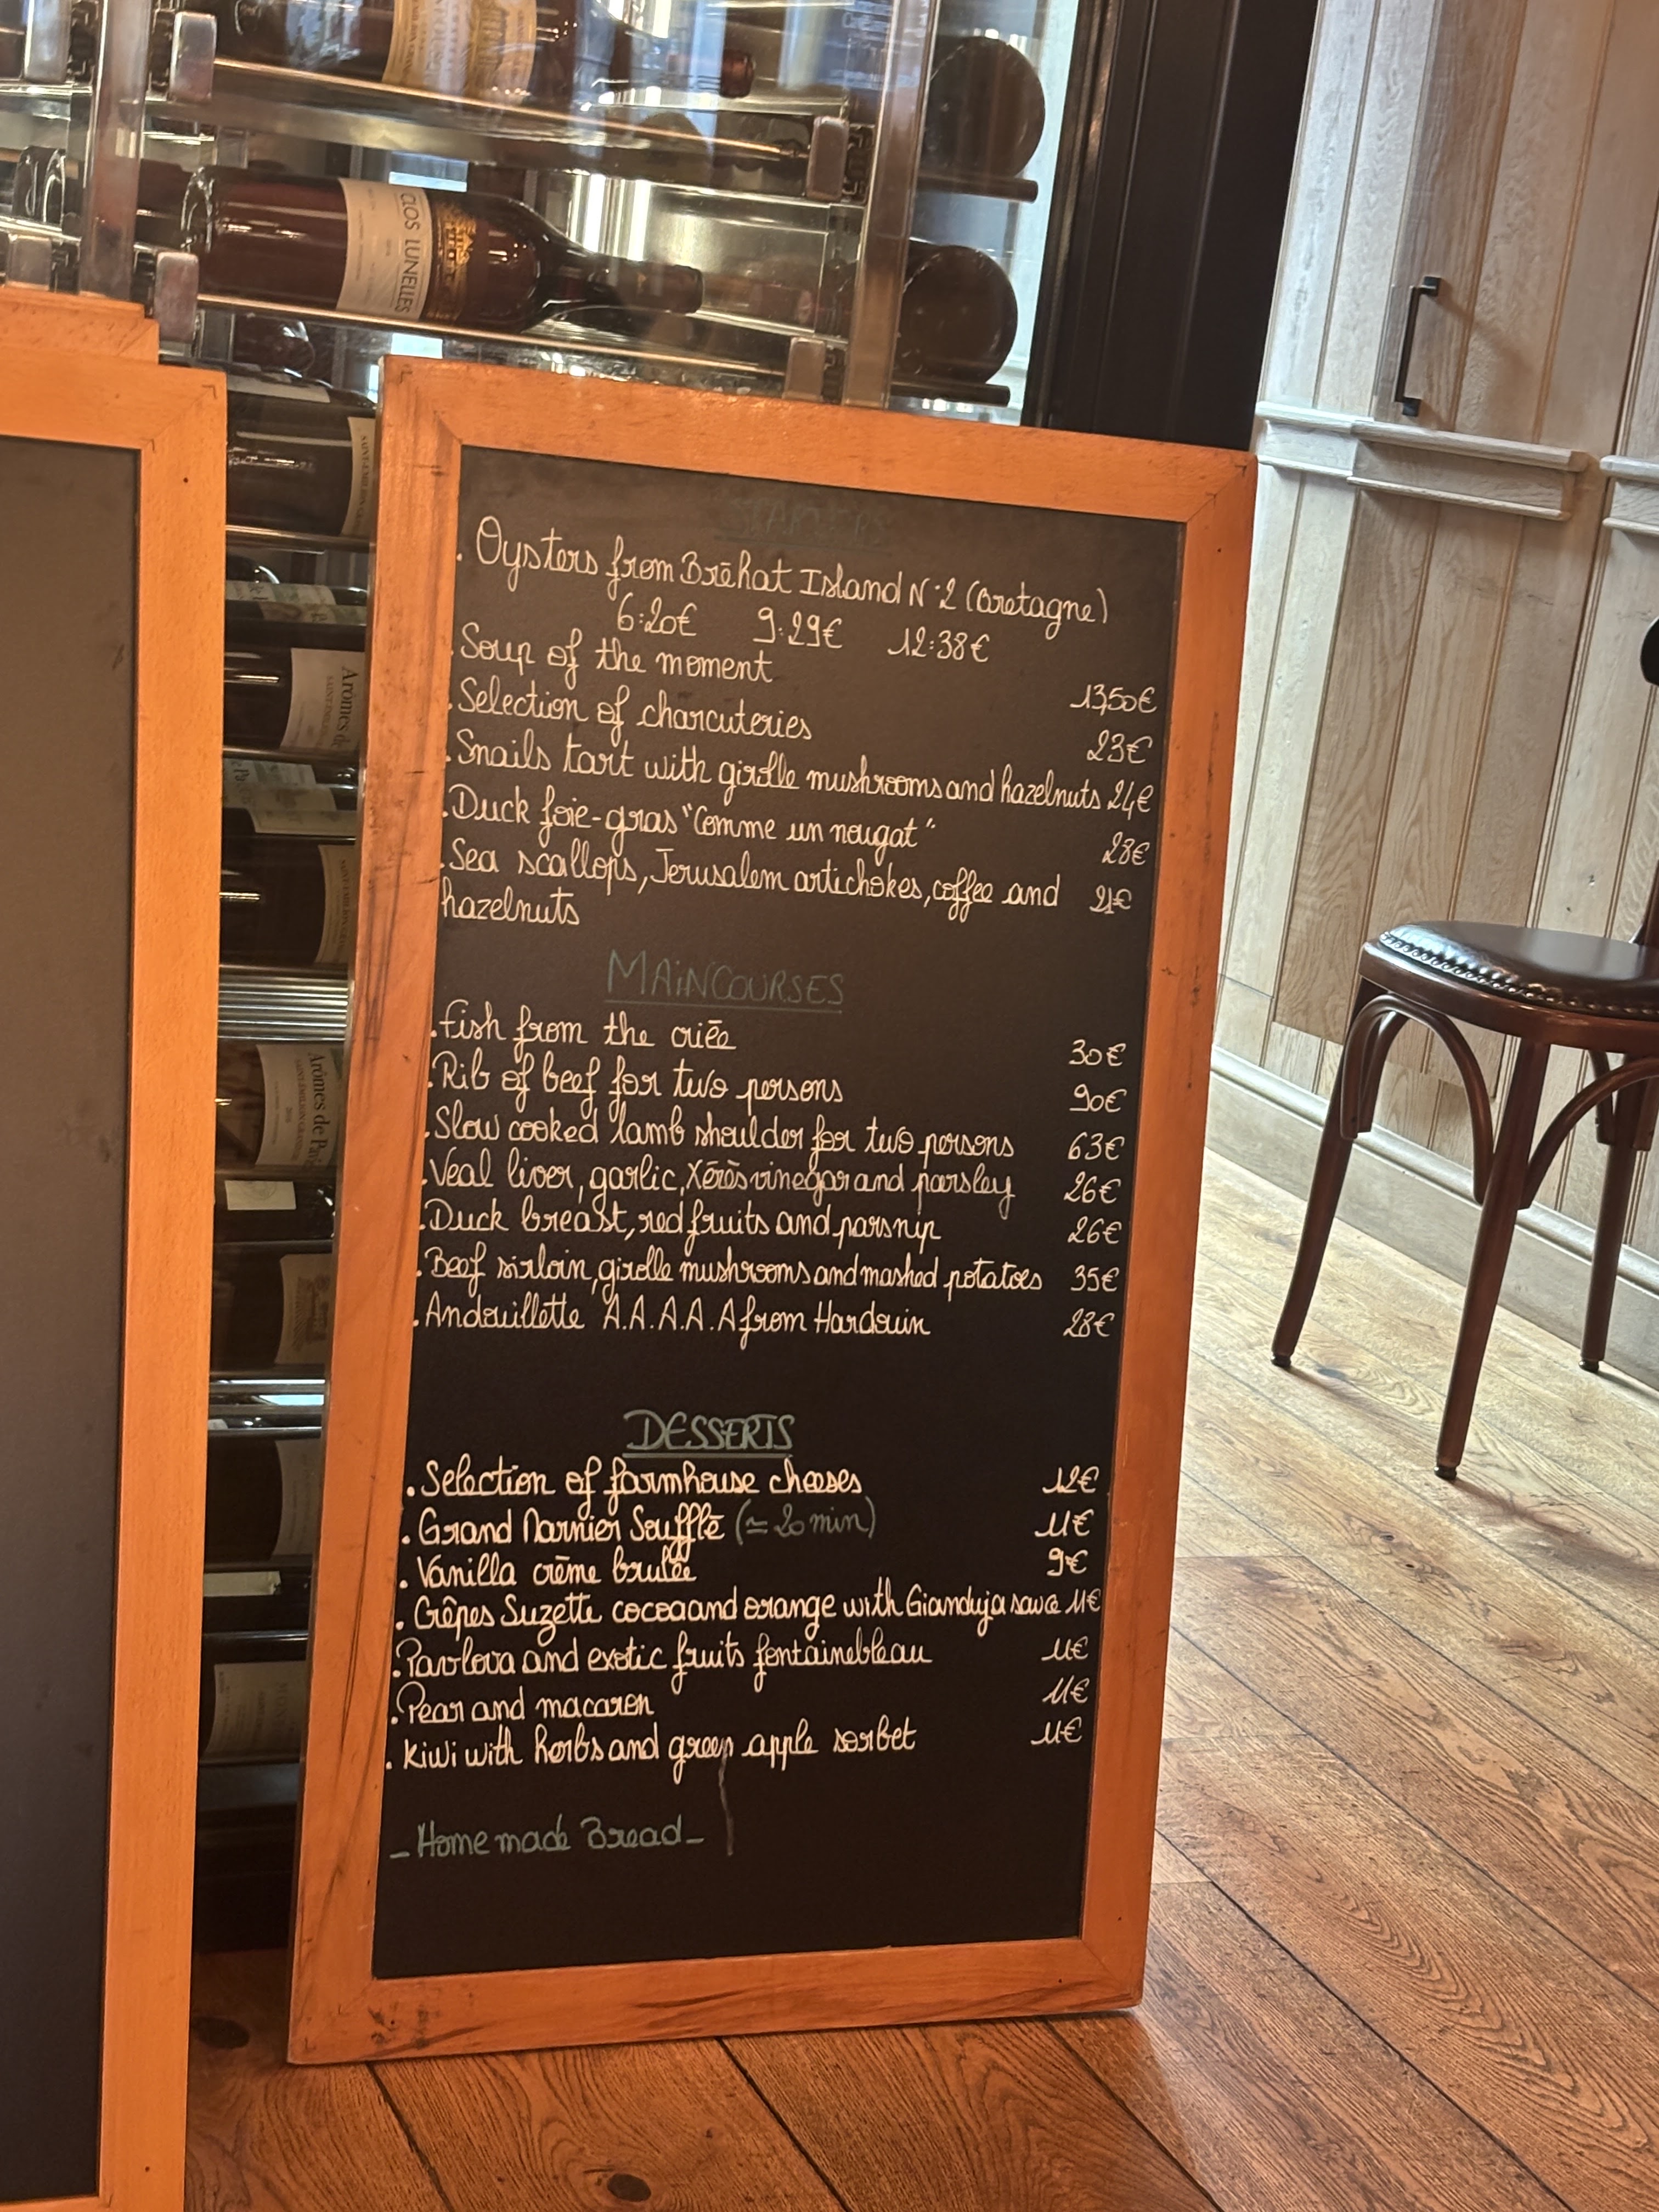 CLOS LUNELLES
STARTERS
. Oysters from Bréhat Island N°2 (Bretagne)
6:20€ 9:29€ 12:38€
. Soup of the moment 13,50€
. Selection of charcuteries 23€
. Snails tart with girolle mushrooms and hazelnuts 24€
. Duck foie-gras "Comme un nougat" 28€
. Sea scallops, Jerusalem artichokes, coffee and 21€
hazelnuts
MAIN COURSES
. Fish from the criée 30€
. Rib of beef for two persons 90€
. Slow cooked lamb shoulder for two persons 63€
. Veal liver, garlic, Xérès vinegar and parsley 26€
. Duck breast, red fruits and parsnip 26€
. Beef sirloin, girolle mushrooms and mashed potatoes 35€
. Andouillette A.A.A.A.A from Hardouin 28€
DESSERTS
. Selection of farmhouse cheeses 12€
. Grand Marnier Soufflé (≃ 20 min) 11€
. Vanilla crème brulée 9€
. Crêpes Suzette cocoa and orange with Gianduja sauce 11€
. Pavlova and exotic fruits fontainebleau 11€
. Pear and macaron 11€
. Kiwi with herbs and green apple sorbet 11€
- Home made Bread -
Arômes de
Arômes de Pav